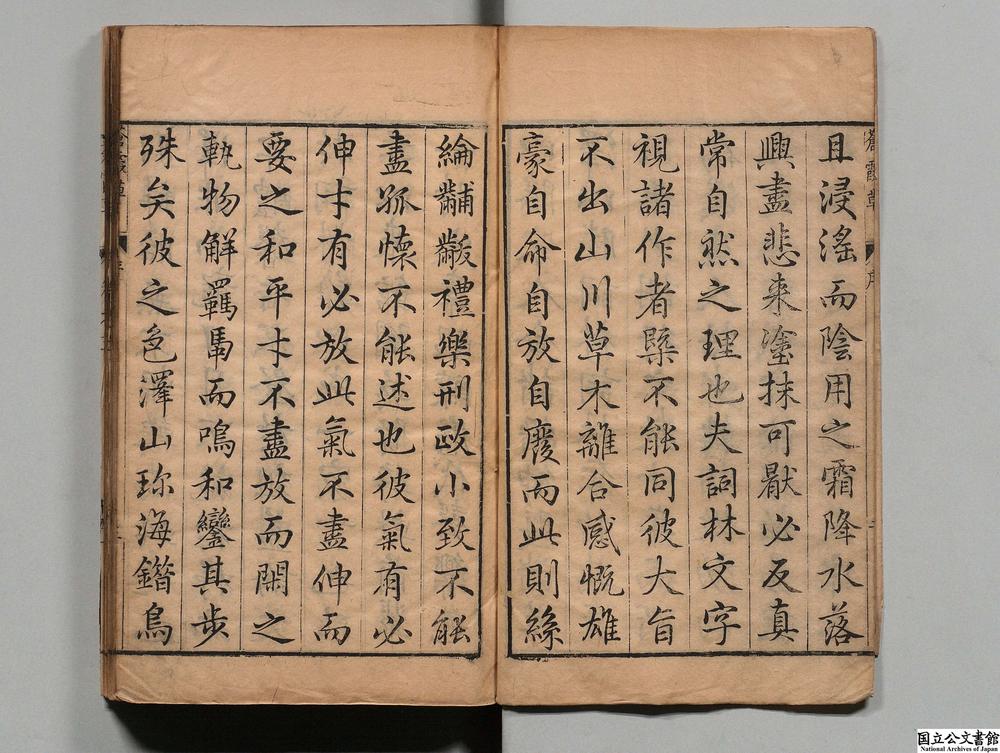 蒼霞草
序
且浸淫而陰用之霜降水落
興盡悲来塗抹可厭必反真
常自然之理也夫詞林文字
視諸作者㮣不能同彼大旨
不出山川草木離合感慨雄
豪自命自放自廢而此則絲
綸黼黻禮樂刑政小致不能
盡孤懷不能述也彼氣有必
伸才有必放此氣不盡伸而
要之和平才不盡放而閑之
軌物解羈馬而鳴和鑾其步
殊矣彼之色澤山珎海錯鳥
蒼霞草
国立公文書館
National Archives of Japan